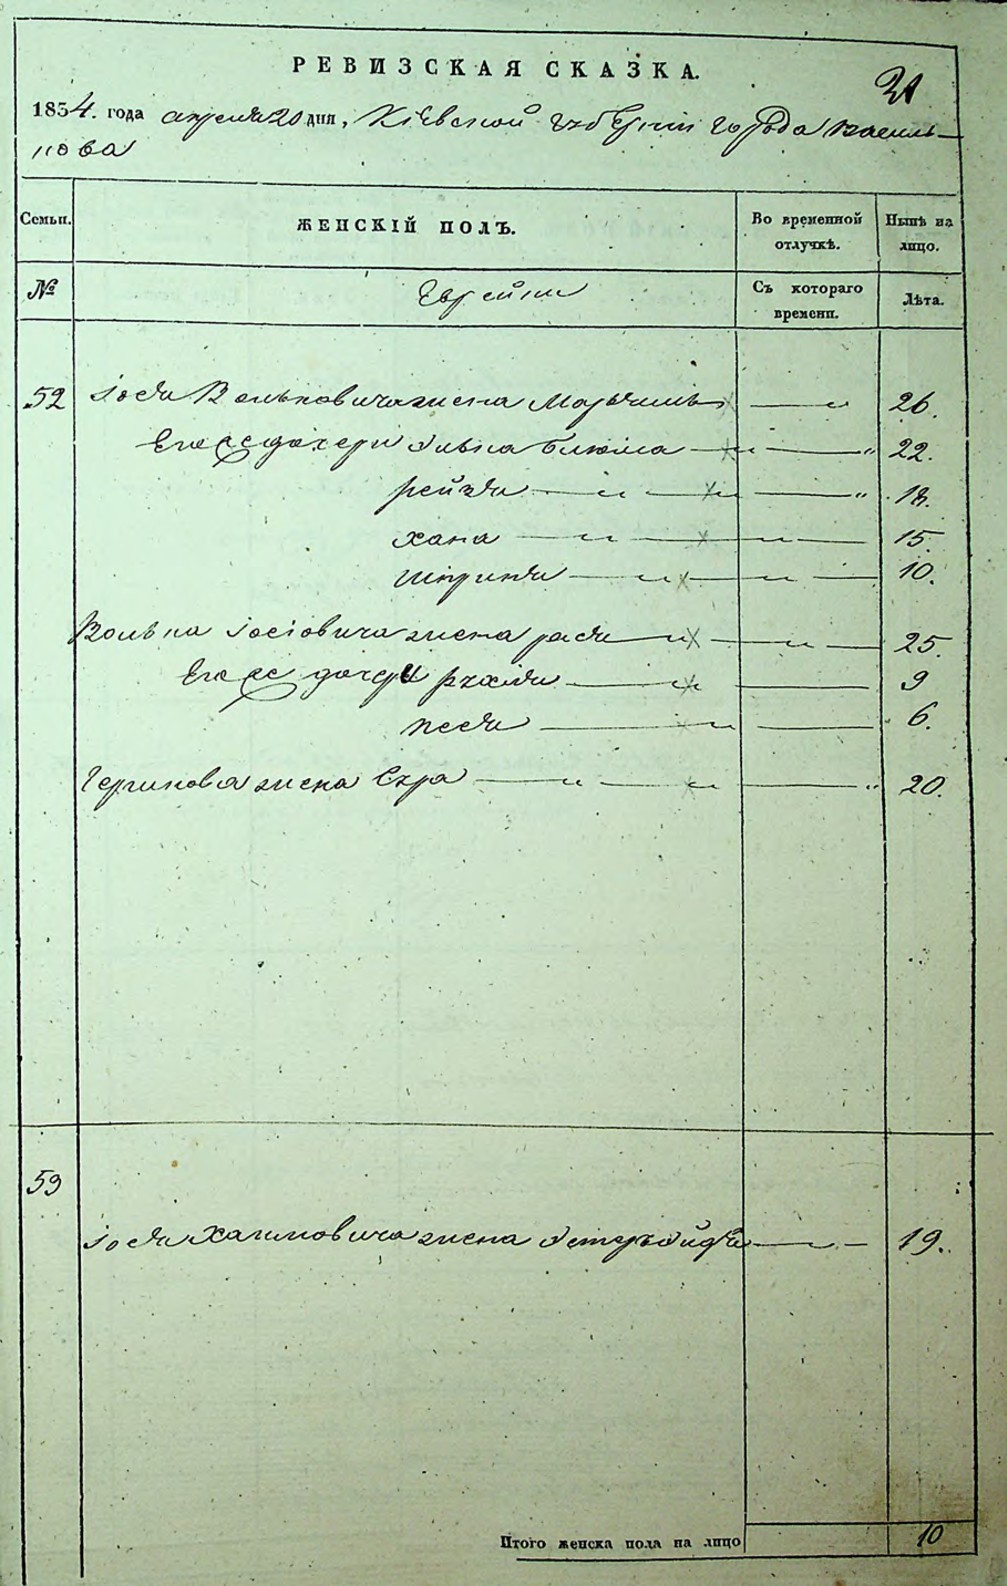 31
РЕВИЗСКАЯ СКАЗКА.
1854. года апреля 20 дня, Кіевской губерніи города Василь-
кова
Семьи. ЖЕНСКІЙ ПОЛЪ. Во временной отлучкѣ. Нынѣ на лицо.
№ Еврейки Съ котораго времени. Лѣта.
52 Іося Вольковича жена 26.
Его же дочери Блюма 22.
рейзя 18.
хана 15.
шпринця 10.
Волька Іосіовича жена рася 25.
Его же дочери рхля 9
песя 6.
Гершкова жена Сура 20.
53
Іося Хаимовича жена 19.
Итого женска пола на лицо 10